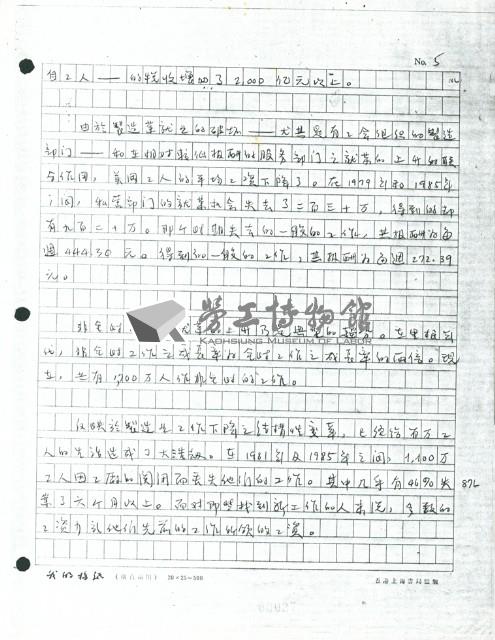 No. 5
自工人——的稅收增加了2,000亿元以上。
由於製造業就业的破坏——尤其是有工会组织的製造
部门——和在相对較低报酬的服务部门之就業的上升的联
合作用，美国工人的平均工資下降了。在1979年和1985年
之间，私营部门的就業机会失去了二百三十万，得到的却
有九百二十万。那个时期失去的一般的工作，其报酬为每
週444.30元。得到的一般的工作，其报酬为每週272.39
元。
勞工博物館
KAOHSIUNG MUSEUM OF LABOR
非全时工作之成長率为全时工作之成長率的两倍。現
在，共有1,700万人作非全时的工作。
仅映於製造业工作下降之结構性变革，已经给百万工
人的生活造成了大浩级。在1981年及1985年之间，1,100万
工人因工廠的関闭而丟失他们的工作。其中几乎有46%失
業了六个月以上。而对那些找到新工作的人来说，多数的
工資少於他们先前的工作所领的工資。
我的稿紙 20×25=500
香港上海書局監製